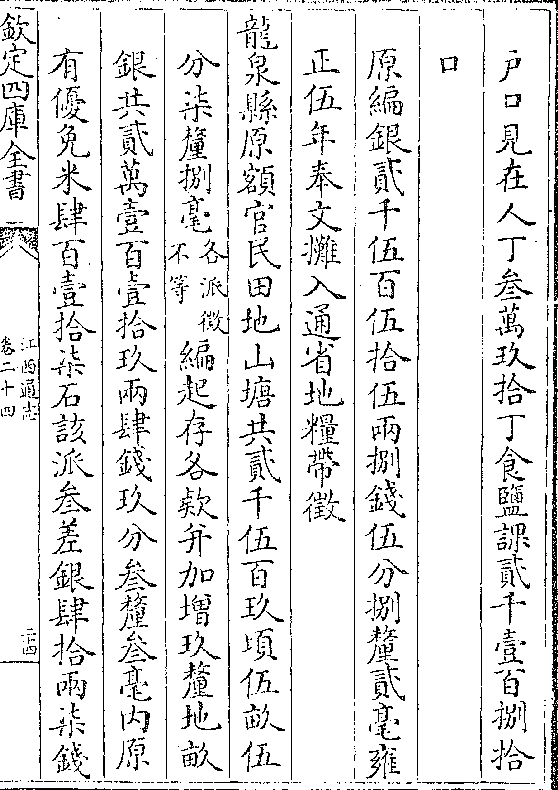 戸口見在人丁叁萬玖拾丁食鹽課貳千壹百捌拾
口
原編銀貳千伍百伍拾伍兩捌錢伍分捌釐貳毫雍
正伍年奉文攤入通省地糧帶徵
龍泉縣原額官民田地山塘共貳千伍百玖頃伍畝伍
分柒釐捌毫各派徵不等編起存各款并加增玖釐地畝
銀共貳萬壹百壹拾玖兩肆錢玖分叁釐叁毫内原
有優免米肆百壹拾柒石該派叁差銀肆拾兩柒錢
欽定四庫全書
江西通志
卷二十四
二四